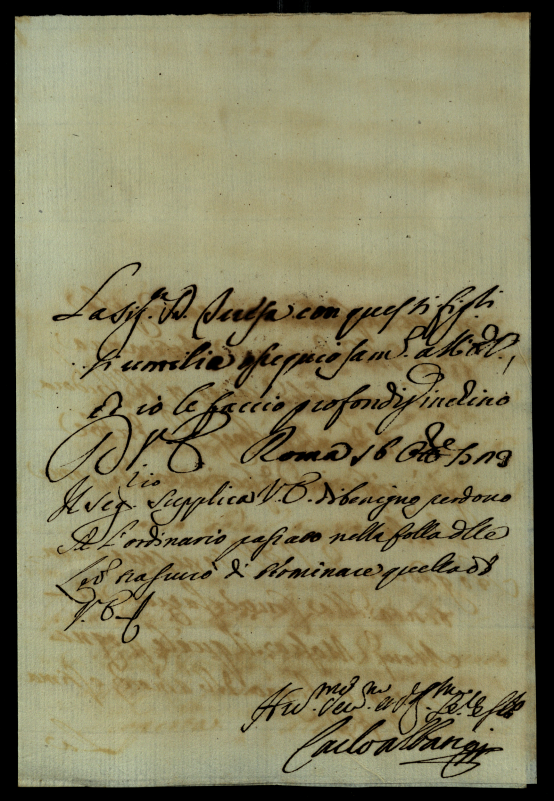 La Sig.ra D. Giulia con questi figli
si umilia ossequiosam.e a V.E.,
et io le faccio profondiss. inchino
D V.E. Roma 16 Xbre 1713
Il Seg.rio supplica V.E. di benigno perdono
se l'ordinario passato nella folla delle
trascurò di nominare quella di
V.E.
Hu.mo Dev.mo et
Carlo Albani